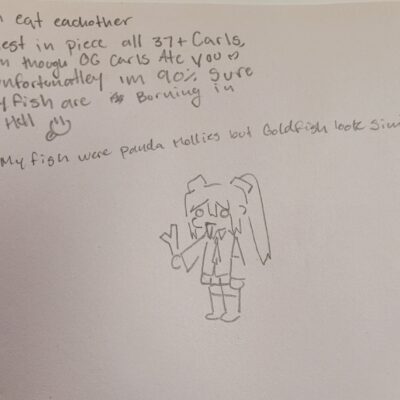 eat eachother
est in piece all 37+ Carls,
though OG Carls Ate You
unfortunatley im 90% sure
fish are Borning in
Hell
My fish were panda Mollies but Goldfish look Simi